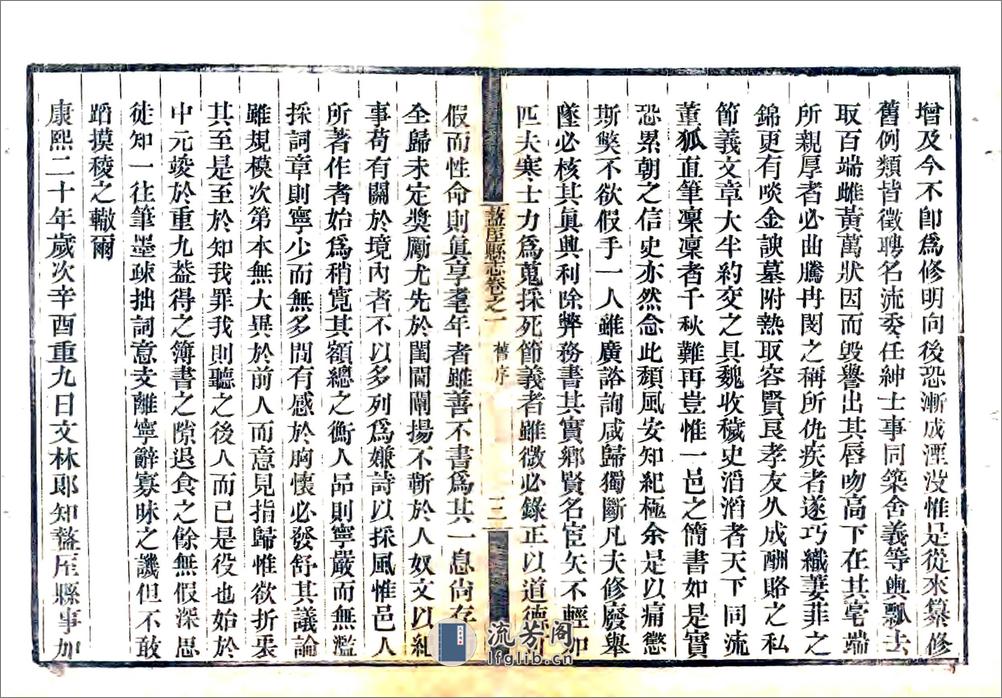 增及今不卽爲修明向後恐漸成湮没惟是從來纂修
舊例類皆徵聘名流委任紳士事同築舍義等輿瓢去
取百端雌黃萬狀因而毀譽出其唇吻高下在其毫端
所親厚者必曲騰冉閔之稱所仇疾者遂巧織萋菲之
錦更有啖金諛墓附熱取容賢良孝友久成酬賂之私
節義文章大半約交之具魏收穢史滔滔者天下同流
董狐直筆凜凜者千秋難再豈惟一邑之簡書如是實
恐累朝之信史亦然念此頽風安知紀極余是以痛懲
斯獘不欲假手一人雖廣諮詢咸歸獨斷凡夫修廢舉
墜必核其眞興利除弊務書其實鄉賢名臣矢不輕加
匹夫寒士力爲蒐採死節義者雖微必錄正以道德
盩厔縣志卷之一
舊序
三
假而性命則眞享耄年者雖善不書爲其一息尚存
全歸未定獎勵尤先於閨閫闡揚不靳於人奴文以紀
事苟有關於境內者不以多列爲嫌詩以採風惟邑人
所著作者始爲稍寬其額總之衡人品則寧嚴而無濫
採詞章則寧少而無多間有感於胸懷必發舒其議論
雖規模次第本無大異於前人而意見指歸惟欲折衷
其至是至於知我罪我則聽之後人而已是役也始於
中元竣於重九葢得之簿書之隙退食之餘無假深思
徒知一往筆墨疎拙詞意支離寧辭寡昧之譏但不敢
蹈摸稜之轍爾
康熙二十年歲次辛酉重九日文林郎知盩厔縣事加
流芳阁
lfglib.cn